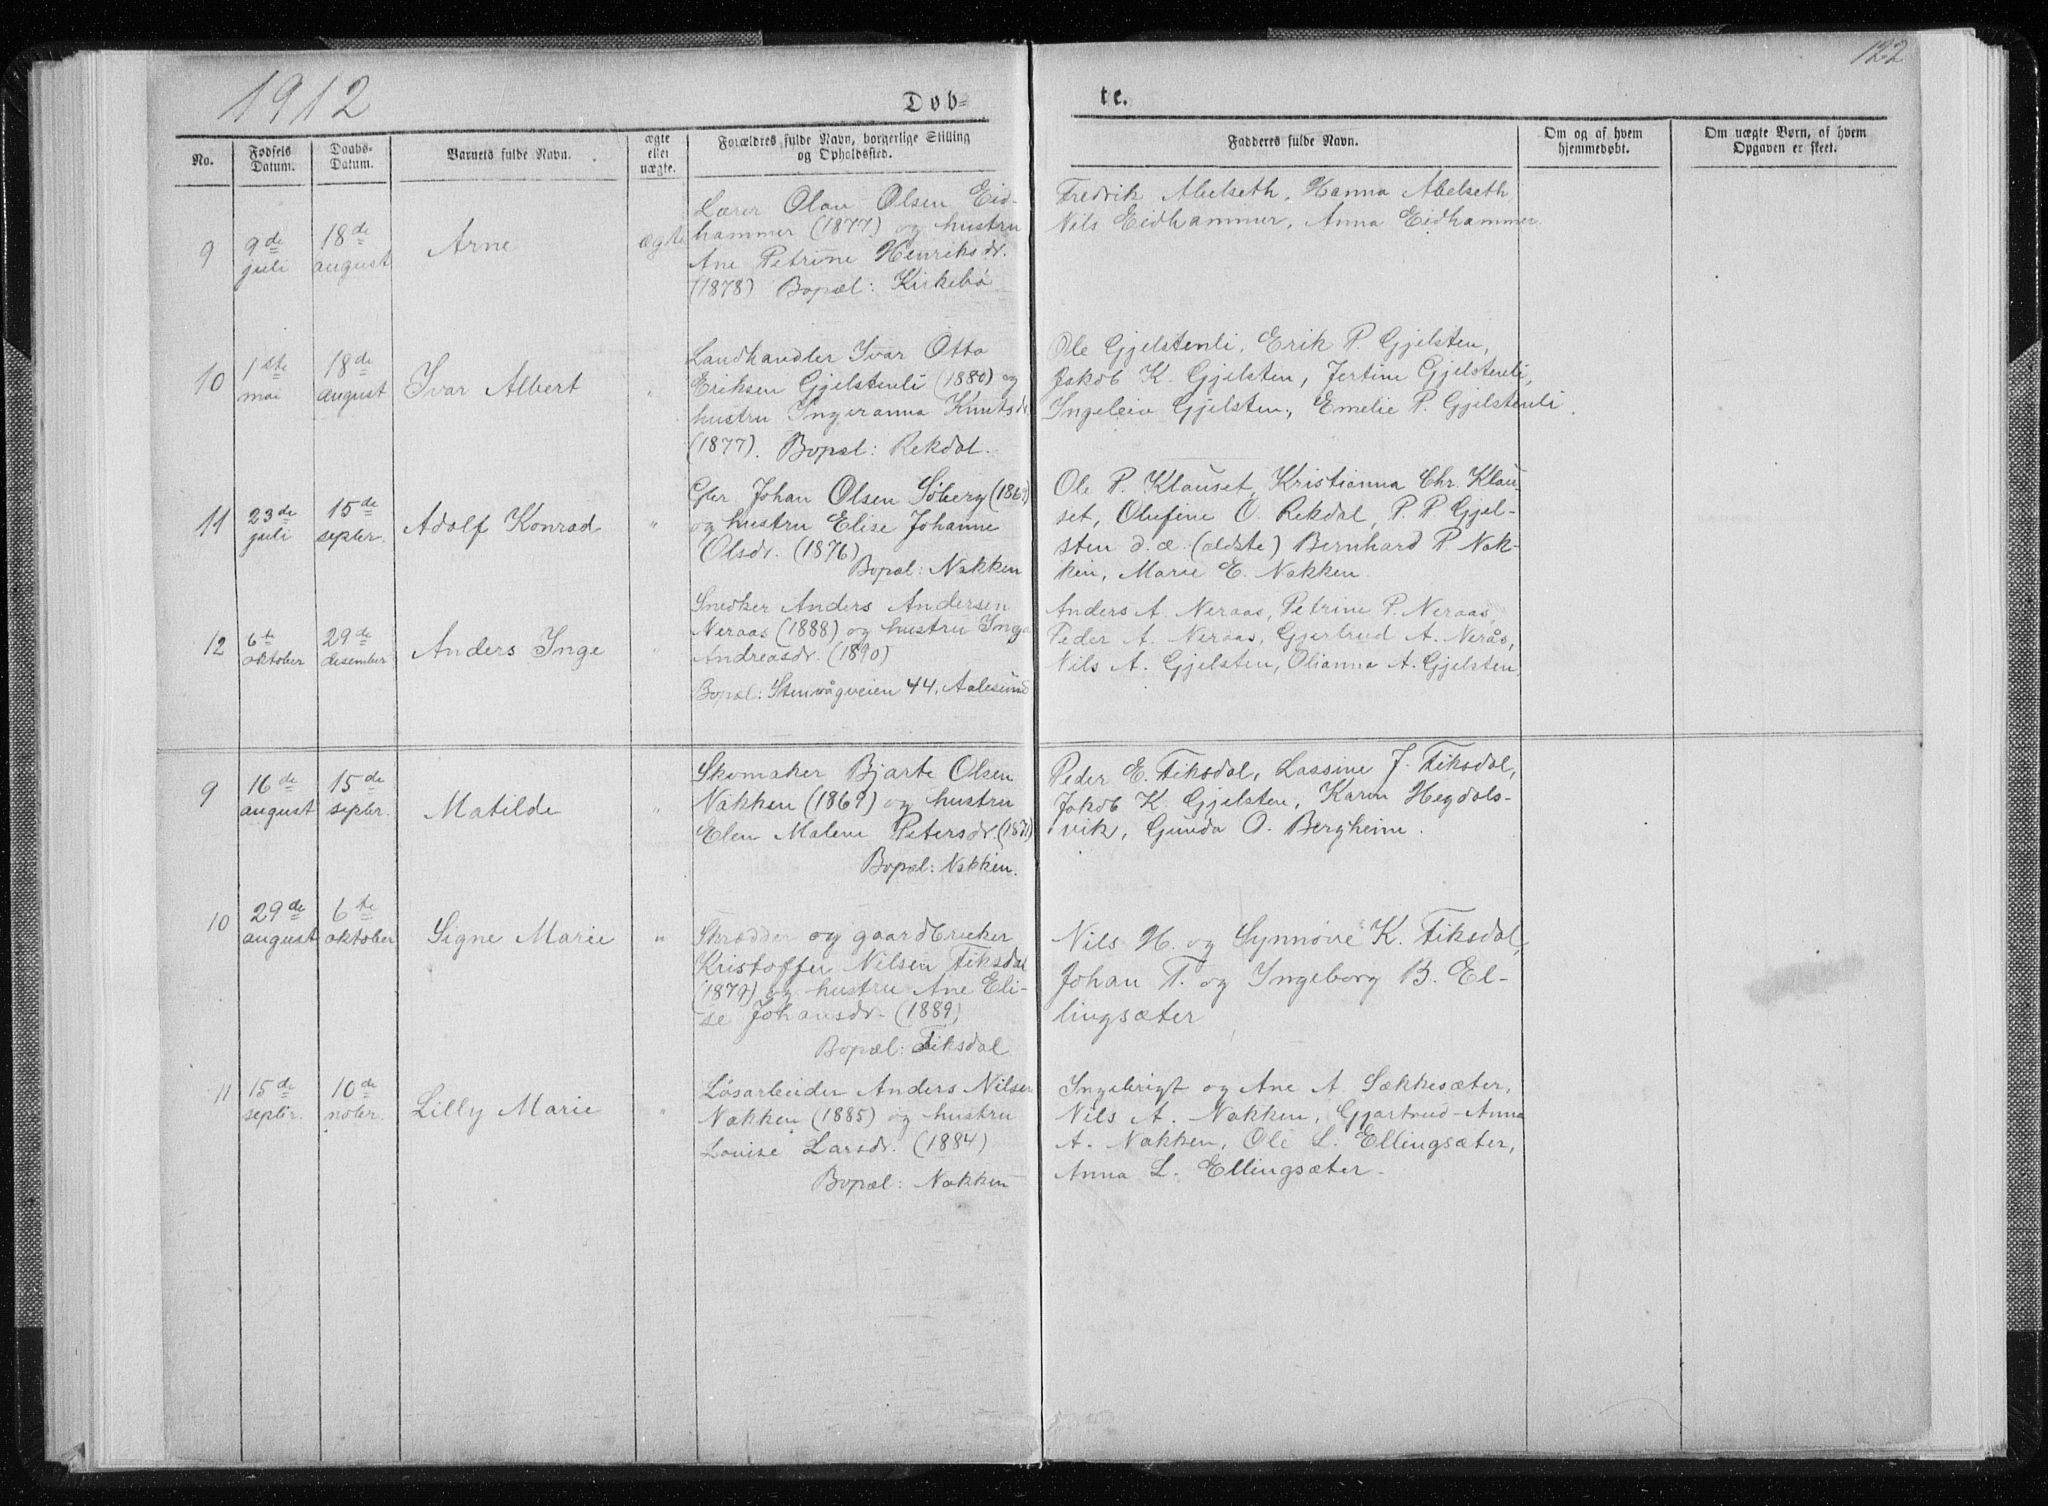 1912
122
Døb=
te.
No.
Fødsels Datum.
Daabs-Datum.
Barnets fulde Navn.
ægte eller uægte.
Forældres fulde Navn, borgerlige Stilling og Opholdssted.
Fadderes fulde Navn.
Om og af hvem hjemmedøbt.
Om uægte Børn, af hvem Opgaven er skeet.
9
9de juli
18de august
Arne
ægte
Lærer Olav Olsen Eid-
hammer (1877) og hustru
Ane Petrine Henriksdr.
(1878) Bopæl: Kirkebø
Fredrik Abelseth, Hanna Abelseth
Nils Eidhammer, Anna Eidhammer
10
1ste mai
18de august
Ivar Albert
"
Landhandler Ivar Otto
Eriksen Gjelstenli (1880) og
hustru Ingeranna Knutsdr
(1877). Bopæl: Rekdal.
Ole Gjelstenli, Erik P. Gjelsten,
Jakob K. Gjelsten, Jertine Gjelstenli,
Ingeleiv Gjelsten, Emelie P. Gjelstenli.
11
23de juli
15de septbr.
Adolf Konrad
"
Johan Olsen Søberg
og hustru Elise Johanne
Olsdr. (1876)
Bopæl: Nakken
Ole P. Klauset, Kristianna Chr. Klau-
set, Olufine O. Rekdal, P. P. Gjel-
sten d.æ. (ældste) Bernhard P. Nak-
ken, Marie E. Nakken.
12
6te oktober
29de desember
Anders Inge
"
Snedker Anders Andersen
Neraas (1888) og hustru Inga
Andreasdr. (1890)
Bopæl: Stenvågveien 44, Aalesund
Anders A. Neraas, Petrine P. Neraas,
Peder A. Neraas, Gjertrud A. Nerås,
Nils A. Gjelsten, Olianna A. Gjelsten.
9
16de august
15de septbr.
Matilde
"
Skomaker Bjarte Olsen
Nakken (1869) og hustru
Elen Malene Petersdr.
Bopæl: Nakken.
Peder E. Fiksdal, Lassine J. Fiksdal,
Jakob K. Gjelsten, Karen Hegdals-
vik, Gunda O. Bergheim.
10
29de august
6te oktober
Signe Marie
"
Skrædder og gaardbruker
Kristoffer Nilsen Fiksdal
(1879) og hustru Ane Eli-
se Johansdr. (1889)
Bopæl: Fiksdal
Nils H. og Synnøve K. Fiksdal,
Johan T. og Ingeborg B. El-
lingsæter
11
15de septbr.
10de novbr.
Lilly Marie
"
Løsarbeider Anders Nilsen
Nakken (1885) og hustru
Louise Larsdr. (1884)
Bopæl: Nakken
Ingebrigt og Ane A. Sækkesæter,
Nils A. Nakken, Gjertrud-Anna
A. Nakken, Ole L. Ellingsæter,
Anna L. Ellingsæter.